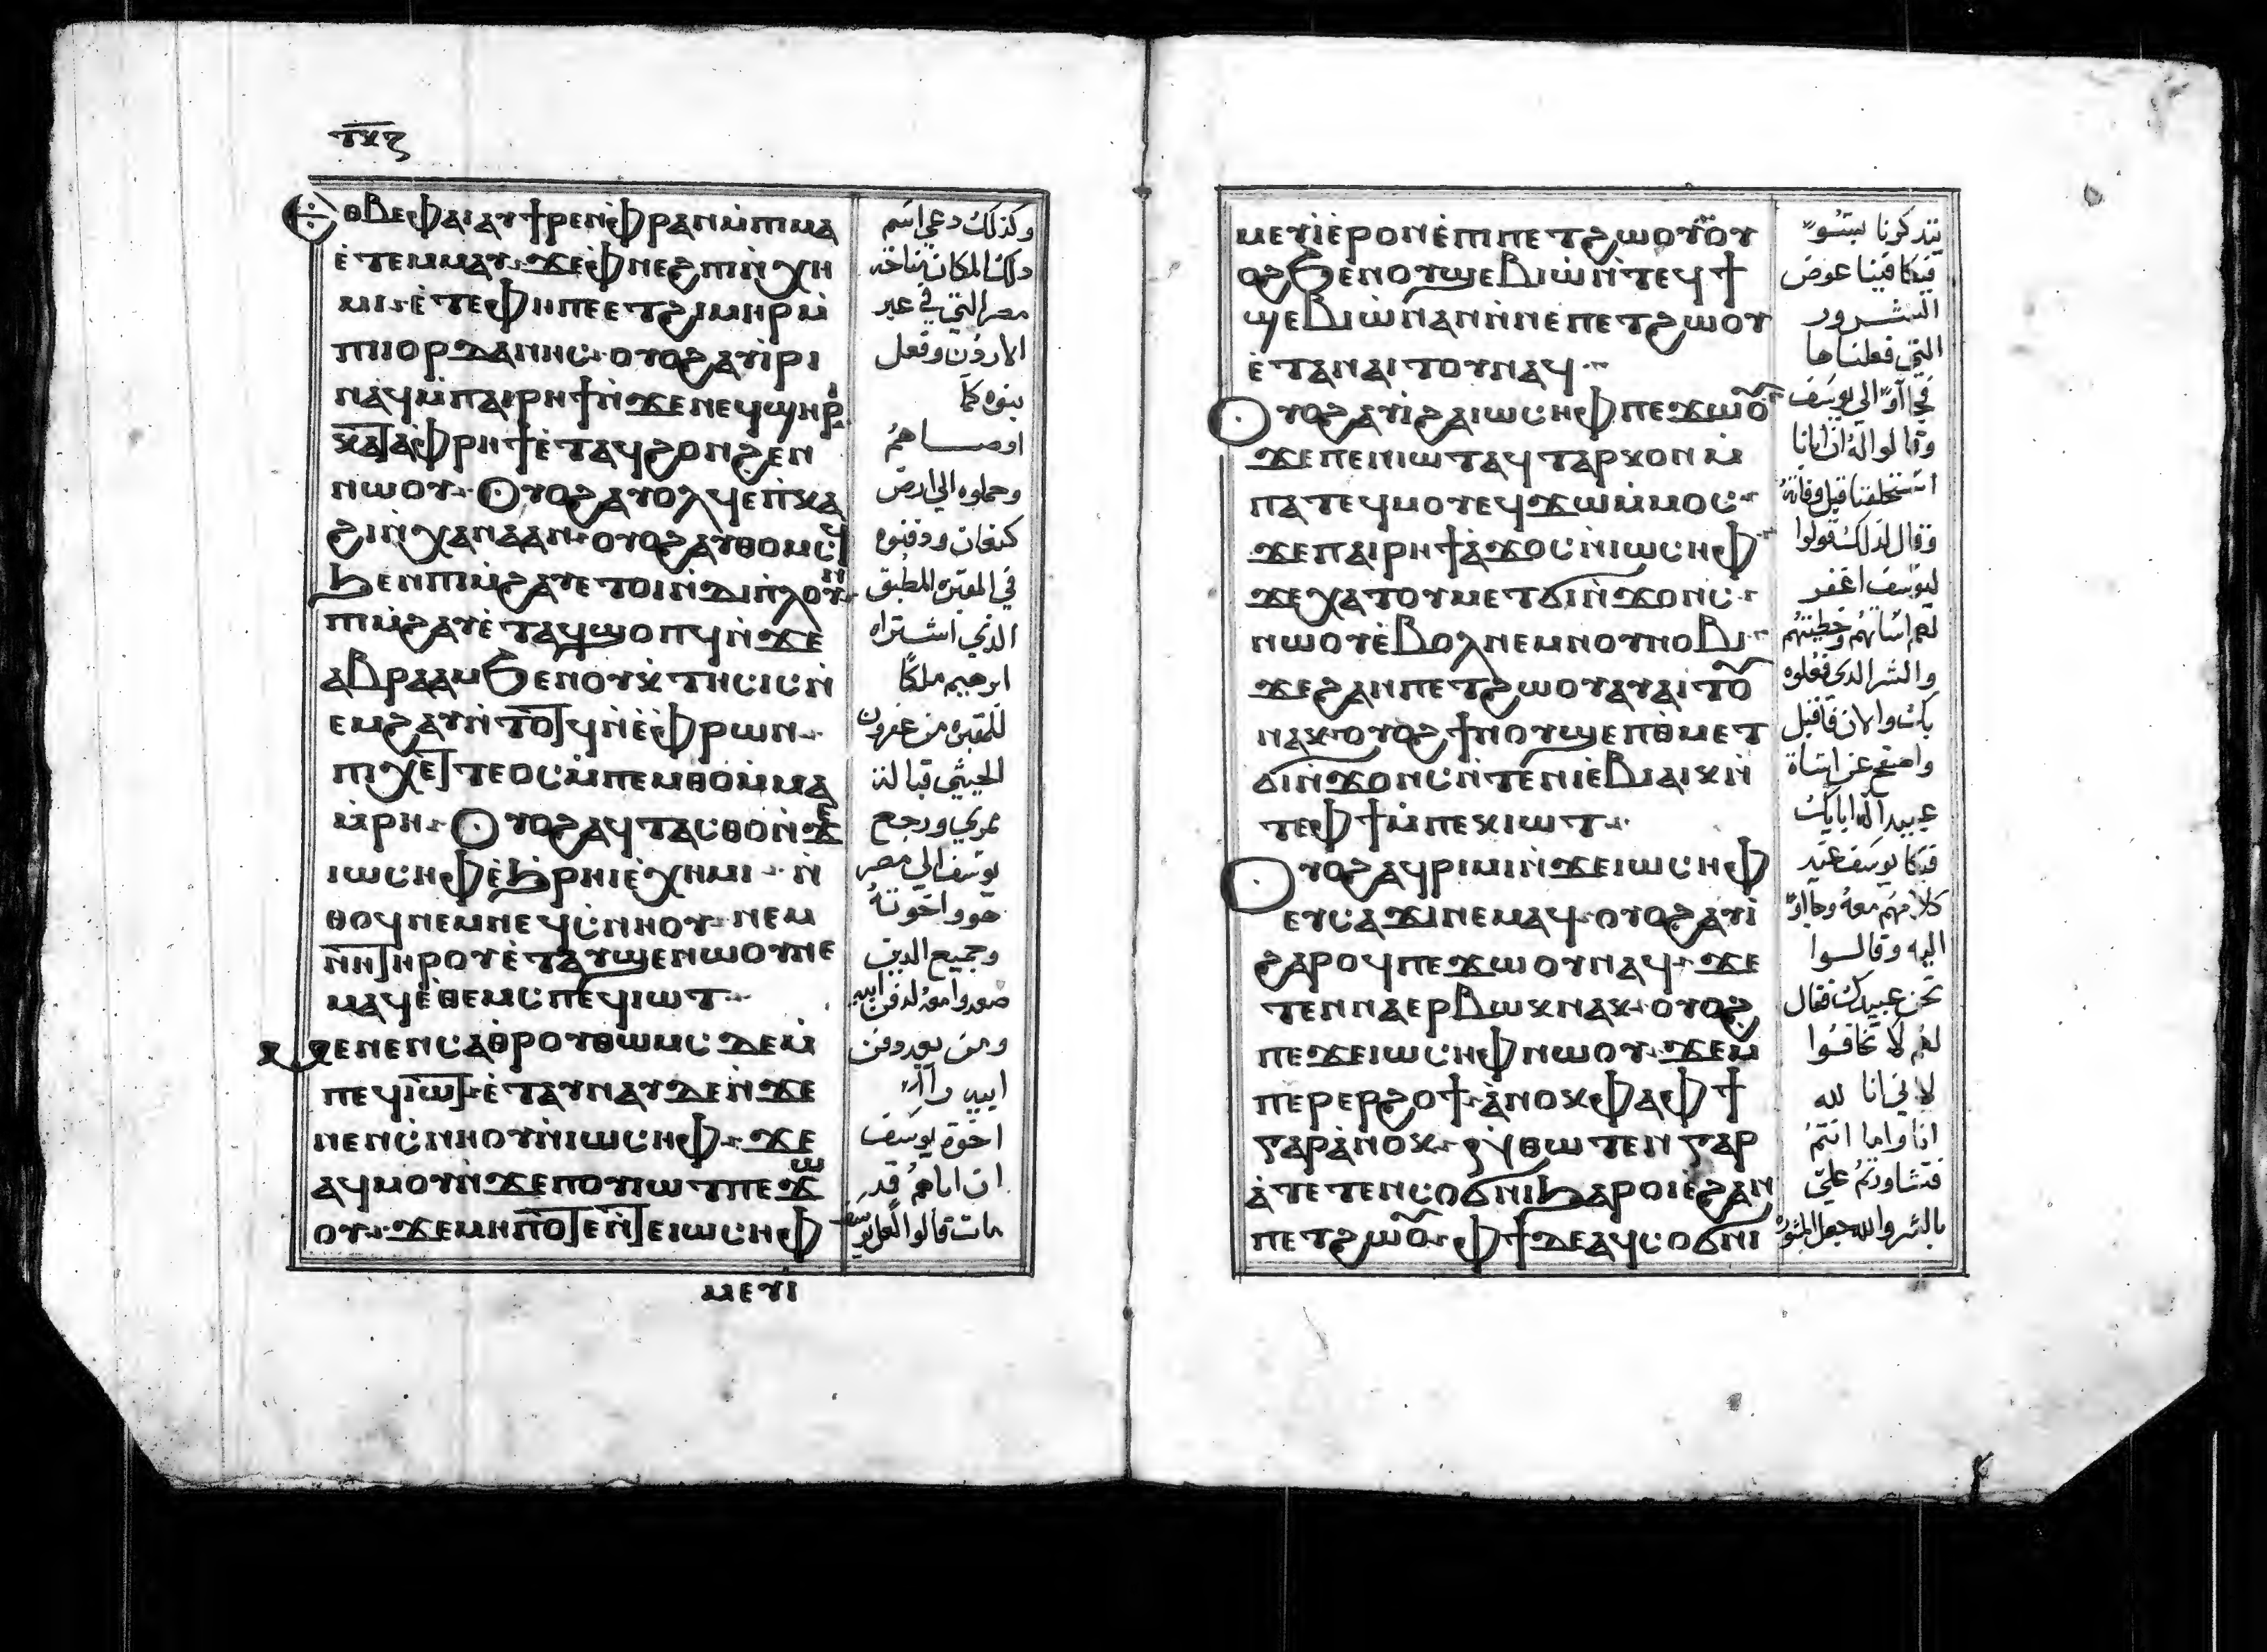 ⲧⲝⲋ
ⲉⲑⲃⲉⲫⲁⲓⲁⲩϯⲣⲉⲛⲫⲣⲁⲛⲙ̀ⲡⲓⲙⲁ
ⲉ̀ⲧⲉⲙⲙⲁⲩ ϫⲉⲫⲛⲉϩⲡⲓⲛ̀ⲭⲏ
ⲙⲓ ⲉ̀ⲧⲉⲫⲏⲡⲉⲉⲧϩⲓⲙⲏⲣⲙ̀
ⲡⲓⲓⲟⲣⲇⲁⲛⲏⲥ ⲟⲩⲟϩⲁⲩⲓ̀ⲣⲓ
ⲛⲁϥⲙ̀ⲡⲁⲓⲣⲏϯⲛ̀ϫⲉⲛⲉϥϣⲏⲣⲓ
ⲕⲁⲧⲁⲫⲣⲏϯⲉ̀ⲧⲁϥϩⲟⲛϩⲉⲛ
ⲛⲱⲟⲩ ⲟⲩⲟϩⲁⲩⲟⲗϥⲉⲡ̀ⲕⲁ
ϩⲓⲛ̀ⲭⲁⲛⲁⲁⲛ ⲟⲩⲟϩⲁⲩⲑⲟⲙⲥϥ
ϧⲉⲛⲡⲓⲙ̀ϩⲁⲩⲉⲧⲟⲓⲛ̀ⲇⲓⲡⲗⲟⲩⲛ
ⲡⲓⲙ̀ϩⲁⲩⲉ̀ⲧⲁϥϣⲟⲡϥⲛ̀ϫⲉ
ⲁⲃⲣⲁⲁⲙϧⲉⲛⲟⲩⲕ̀ⲧⲏⲥⲓⲥⲛ̀
ⲉⲙϩⲁⲩⲛ̀ⲧⲟⲧϥⲛ̀ⲉ̀ⲫⲣⲱⲛ
ⲡⲓⲭⲉⲧⲧⲉⲟⲥⲙ̀ⲡⲉⲙⲑⲟⲙ̀ⲙⲁ
ⲙ̀ⲣⲏ ⲟⲩⲟϩⲁϥⲧⲁⲥⲑⲟⲛ̀ϫⲉ
ⲓⲱⲥⲏⲫⲉ̀ϧ̀ⲣⲏⲓⲉ̀ⲭⲏⲙⲓ ⲛ̀
ⲑⲟϥⲛⲉⲙⲛⲉϥⲥ̀ⲛⲏⲟⲩ ⲛⲉⲙ
ⲛⲏⲧⲏⲣⲟⲩⲉ̀ⲧⲁⲩϣⲉⲛⲱⲟⲩⲛⲉ
ⲙⲁϥⲉ̀ⲑⲉⲙⲥⲡⲉϥⲓⲱⲧ
ⲙⲉⲛⲉⲛⲥⲁⲑ̀ⲣⲟⲩⲑⲱⲙⲥ ⲇⲉⲙ̀
ⲡⲉϥⲓⲱⲧ ⲉ̀ⲧⲁⲩⲛⲁⲩⲇⲉⲛ̀ϫⲉ
ⲛⲉⲛⲥ̀ⲛⲏⲟⲩⲛ̀ⲓⲱⲥⲏⲫ ϫⲉ
ⲁϥⲙⲟⲩⲛ̀ϫⲉⲡⲟⲩⲓⲱⲧⲡⲉϫⲱ
ⲟⲩ ϫⲉⲙⲏⲡⲟⲧⲉⲛ̀ⲧⲉⲓⲱⲥⲏⲫ
ⲙⲉⲩⲓ
وكذلك دعي اسم
ذلك المكان نياحة
مصر التي في عبر
الاردن وفعل
بنوه كما
اوصاهم
وحملوه الي ارض
كنعان ودفنوه
في المقبره المطبق
الذي اشتراه
ابرهيم ملكًا
للمقبره من عفرون
الحيثي قبالة
ممري ورجع
يوسف الي مصر
هو واخوته
وجميع الذين
صعدوا معه لدفن ابيه
ومن بعد دفن
ابيه رآوا
اخوة يوسف
ان اباهم قد
مات قالوا لعل يوسف
ⲙⲉⲩⲓⲉ̀ⲣⲟⲛⲉ̀ⲡⲓⲡⲉⲧϩⲱⲟⲩⲟⲩ
ⲟϩϧⲉⲛⲟⲩϣⲉⲃⲓⲱⲛ̀ⲧⲉϥϯ
ϣⲉⲃⲓⲱⲛⲁⲛⲛ̀ⲛⲉⲡⲉⲧϩⲱⲟⲩ
ⲉ̀ⲧⲁⲛⲁⲓⲧⲟⲩⲛⲁϥ
ⲟⲩⲟϩⲁⲩⲓ̀ϩⲁⲓⲱⲥⲏⲫⲡⲉϫⲱⲟⲩ
ϫⲉⲡⲉⲛⲓⲱⲧⲁϥⲧⲁⲣⲕⲟⲛⲙ̀
ⲡⲁⲧⲉϥⲙⲟⲩⲉϥϫⲱⲙ̀ⲙⲟⲥ
ϫⲉⲡⲁⲓⲣⲏϯⲁ̀ϫⲟⲥⲛ̀ⲓⲱⲥⲏⲫ
ϫⲉⲭⲁⲧⲟⲩⲙⲉⲧϭⲓⲛ̀ϫⲟⲛⲥ
ⲛⲱⲟⲩⲉ̀ⲃⲟⲗⲛⲉⲙⲛⲟⲩⲛⲟⲃⲓ
ϫⲉϩⲁⲛⲡⲉⲧϩⲱⲟⲩⲁⲩⲁⲓⲧⲟⲩ
ⲛⲁⲕ ⲟⲩⲟϩϯⲛⲟⲩϣⲉⲡⲑ̀ⲙⲉⲧ
ϭⲓⲛ̀ϫⲟⲛⲥⲛ̀ⲧⲉⲛⲓⲉ̀ⲃⲓⲁⲓⲕⲛ̀
ⲧⲉⲫϯⲙ̀ⲡⲉⲕⲓⲱⲧ
ⲟⲩⲟϩⲁϥⲣⲓⲙⲓⲛ̀ϫⲉⲓⲱⲥⲏⲫ
ⲉⲩⲥⲁϫⲓⲛⲉⲙⲁϥ ⲟⲩⲟϩⲁⲩⲓ̀
ϩⲁⲣⲟϥⲡⲉϫⲱⲟⲩⲛⲁϥ ϫⲉ
ⲧⲉⲛⲛⲁⲉⲣⲃⲱⲕⲛⲁⲕ ⲟⲩⲟϩ
ⲡⲉϫⲉⲓⲱⲥⲏⲫⲛⲱⲟⲩ ϫⲉⲙ̀
ⲡⲉⲣⲉⲣϩⲟϯ ⲁ̀ⲛⲟⲕⲫⲁⲫϯ
ⲅⲁⲣⲁ̀ⲛⲟⲕ ⲛ̀ⲑⲱⲧⲉⲛⲅⲁⲣ
ⲁ̀ⲧⲉⲧⲉⲛⲥⲟϭⲛⲓϧⲁⲣⲟⲓⲉ̀ϩⲁⲛ
ⲡⲉⲧϩⲱⲟⲩ ⲫϯⲇⲉⲁϥⲥⲟϭⲛⲓ
يتذكرنا بسو
فيكافينا عوض
الشرور
التي فعلناها
فجاآوا الي يوسف
وقالوا له ان ابانا
استحلفنا قبل وفاته
وقال كذلك قولوا
ليوسف اغفر
لهم اساتهم وخطيتهم
والشر الدي فعلوه
بك والان فاقبل
واصفح عن اساة
عبيد اله ابايك
فبكا يوسف عند
كلامهم معه وجاآوا
اليه وقالوا
نحن عبيدك فقال
لهم لا تخافوا
لاني انا لله
انا واما انتم
فتشاورتم علي